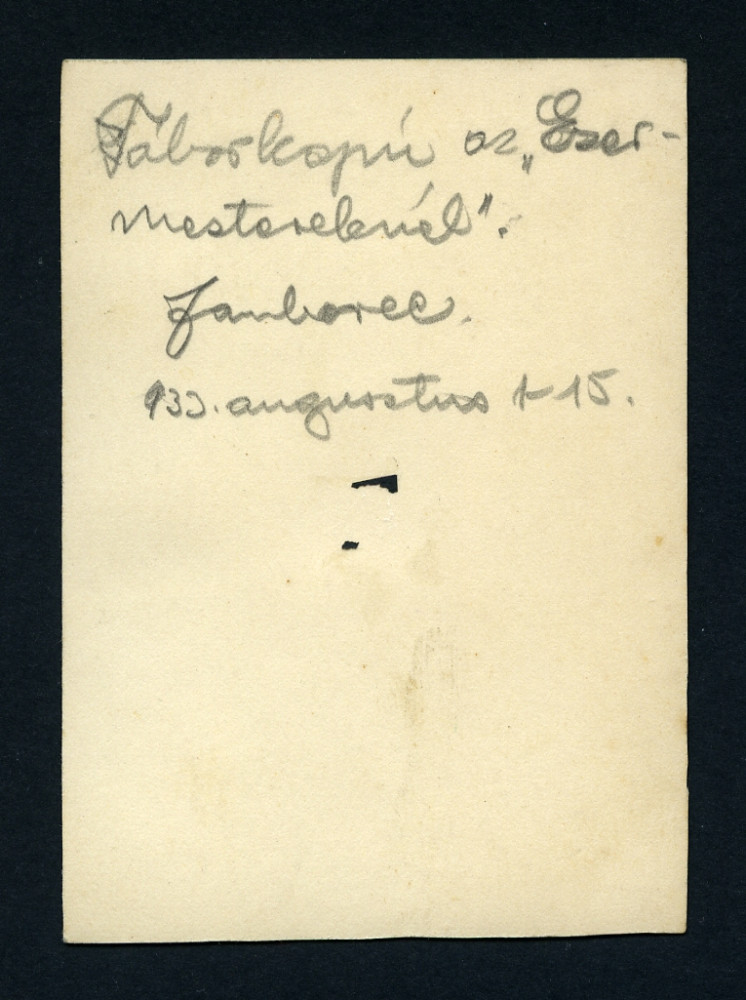 Táborkapú az „Ezer-
mestereknél".
Jamboree.
933. augusztus 1-15.